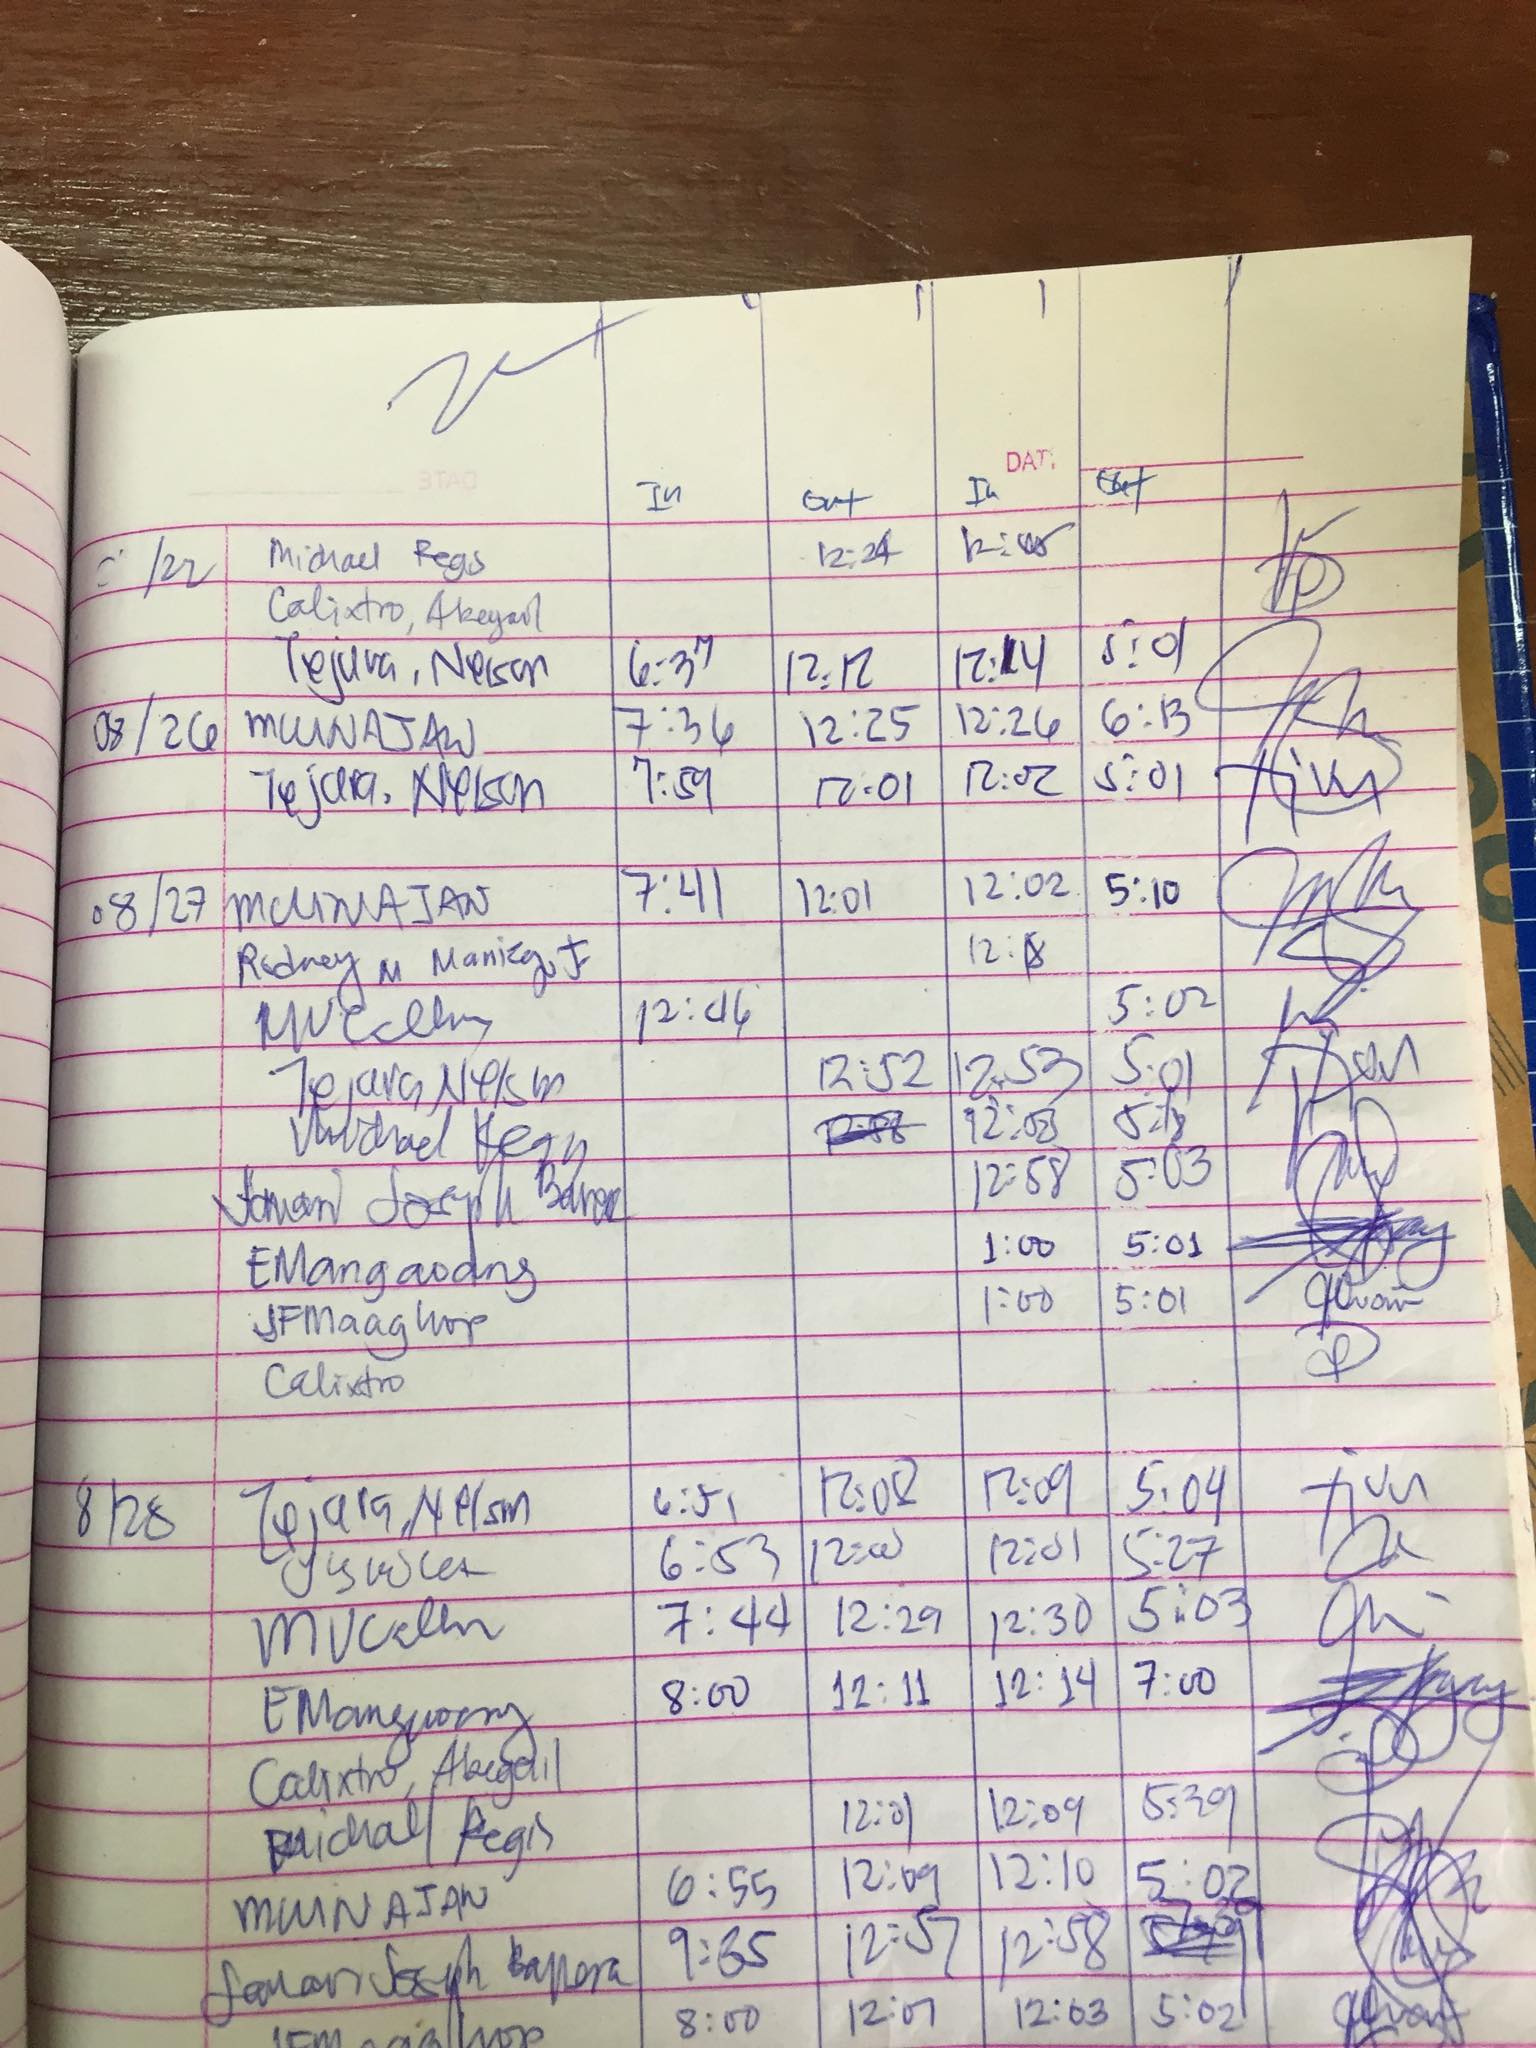 DATE
In Out In Out
/22 Michael Regis 12:24
Calixtro, Abegail
Tejara, Nelson 6:37 12:12 12:14 5:01
08/26 MCUNAJAN 7:36 12:25 12:26 6:13
Tejara, Nelson 7:59 12:01 12:02 5:01
08/27 MCUNAJAN 7:41 12:01 12:02 5:10
Rodney M 12:18
12:46 5:02
Tejara, Nelson 12:52 12:53 5:01
Michael Regis 12:58
Joseph 12:58 5:03
EMangaoang 1:00 5:01
1:00 5:01
Calixtro
8/28 Tejara, Nelson 6:51 12:08 12:09 5:04
6:53 12:00 12:01 5:27
7:44 12:29 12:30 5:03
EMangaoang 8:00 12:11 12:14 7:00
Calixtro, Abegail
Michael Regis 12:01 12:09 5:39
MCUNAJAN 6:55 12:09 12:10 5:02
Joseph 12:57 12:58
8:00 12:03 5:02